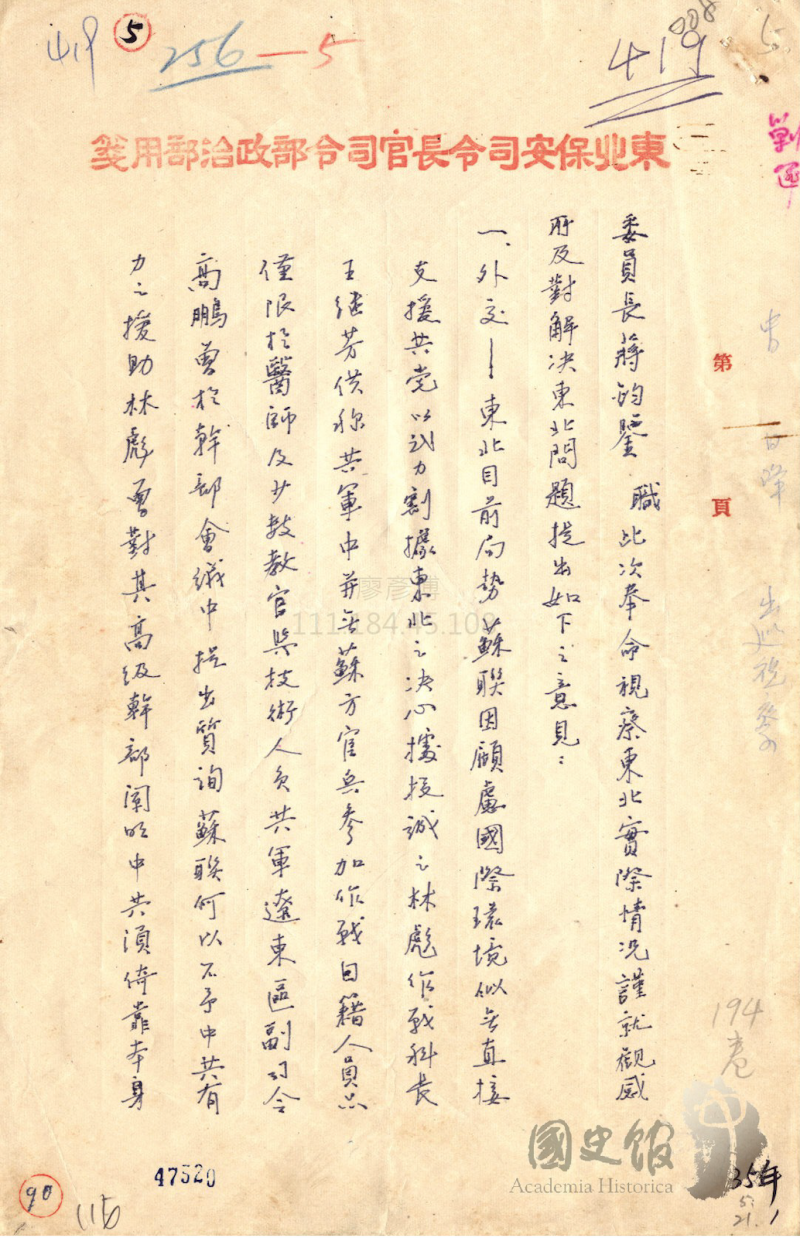 419
5
256-5
008
419
5
東北保安司令長官司令部政治部用箋
第
頁
委員長蔣鈞鑒 職此次奉命視察東北實際情況謹就觀感
所及對解決東北問題提出如下之意見：
一、外交—東北目前局勢蘇聯因顧慮國際環境似無直接
支援共党以武力割據東北之决心據投誠之林彪作战科長
王继芳供称共軍中並無蘇方官兵參加作戰日籍人員亦
僅限於醫師及少数教官與技術人員共軍遼東區副司令
高鵬曾於幹部會議中提出質詢蘇聯何以不予中共有
力之援助林彪曾對其高級幹部闡明中共須倚靠本身
廖彥博
194
卷
國史館
Academia Historica
35年
5.
21.
47520
90
116